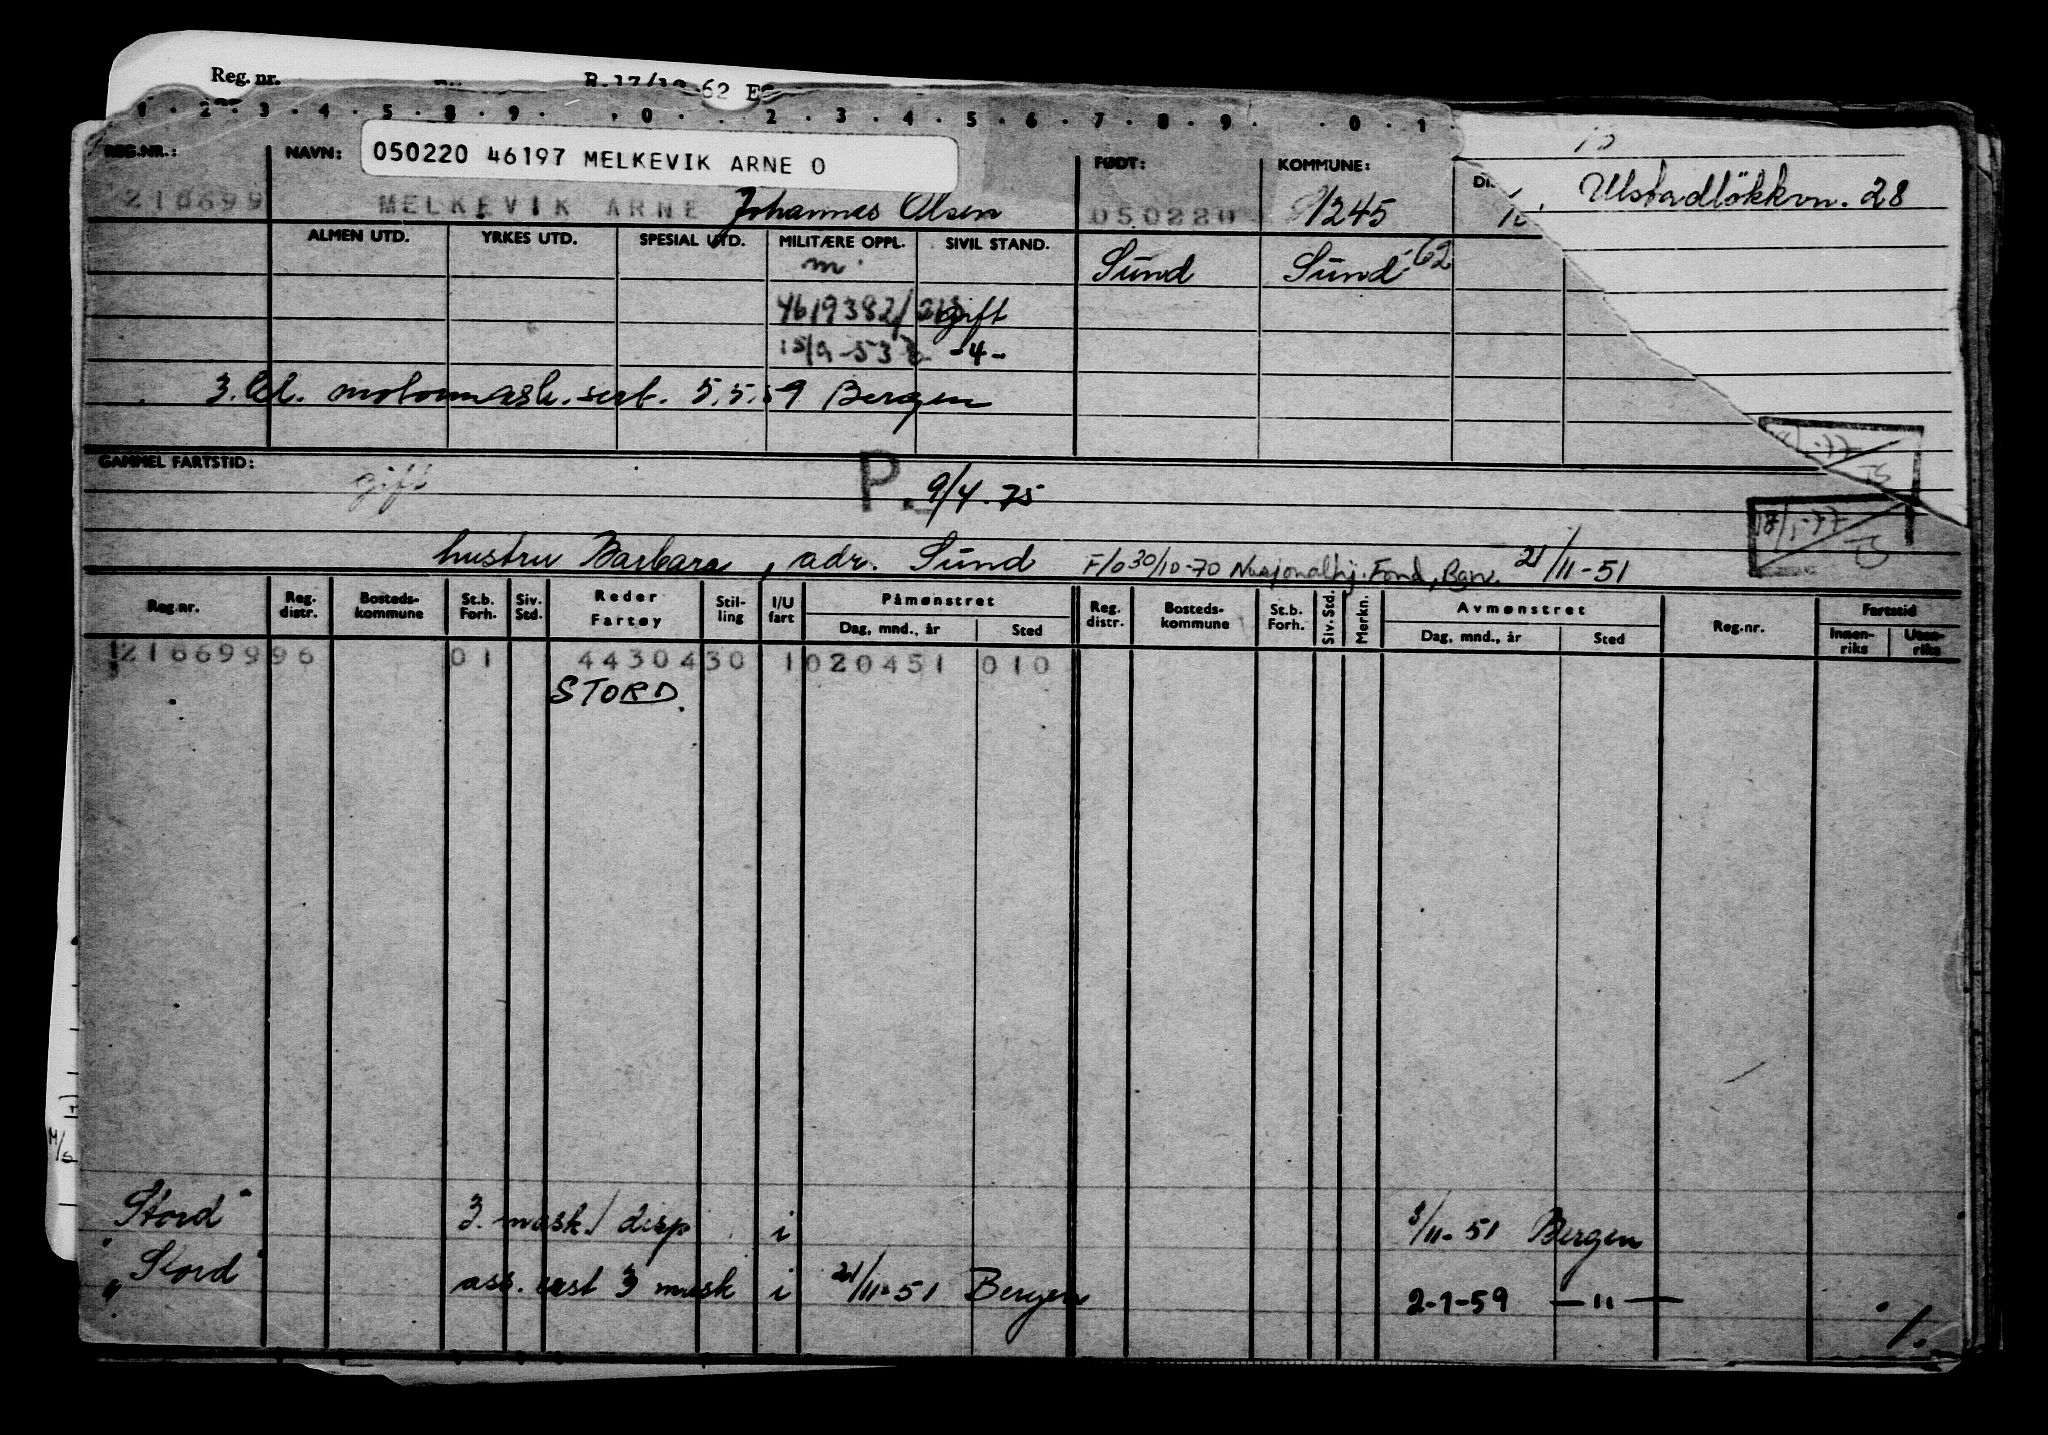 Reg. nr.
62
REG.NR.: NAVN: 050220 46197 MELKEVIK ARNE O FØDT: KOMMUNE:
216699 MELKEVIK ARNE Johannes Olsen 050220 1245 Ulstadløkkvn. 28
ALMEN UTD. YRKES UTD. SPESIAL UTD. MILITÆRE OPPL. SIVIL STAND.
m Sund Sund -62
4619382/ gift
15/9-53 -4-
3. kl. motormask.sert. 5.5.59 Bergen
GAMMEL FARTSTID: gift P. 9/4.75
18/1-77
hustru Barbara, adr. Sund F/o 30/10-70 Nasjonalhj. Fond, Bgn. 21/11-51
Reg.nr. Reg. distr. Bosteds-kommune St.b. Forh. Siv. Std. Reder Fartøy Stil-ling I/U fart Påmønstret Dag, mnd., år Sted Reg. distr. Bosteds-kommune St.b. Forh. Siv. Std. Merkn. Avmønstret Dag, mnd., år Sted Reg.nr. Fartstid Innen-riks Uten-riks
21669996 01 4430430 1020451 010
STORD.
"Stord" 3. mask./disp i 3/11-51 Bergen
"Stord" ass. sist 3 mask i 21/11-51 Bergen 2-1-59 —"—
1.